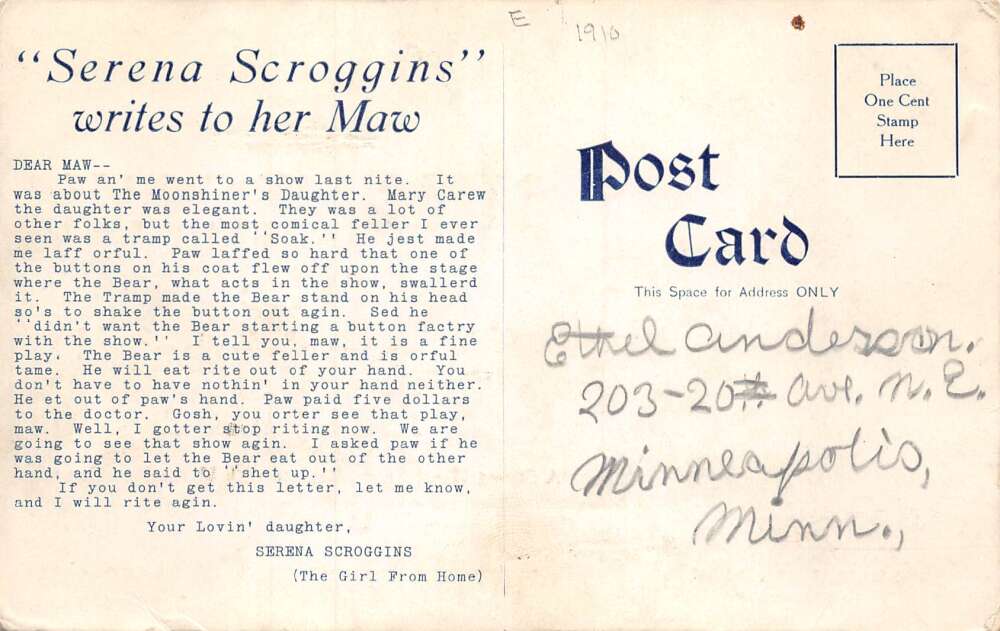 E
1910
"Serena Scroggins"
writes to her Maw
DEAR MAW--
Paw an' me went to a show last nite. It
was about The Moonshiner's Daughter. Mary Carew
the daughter was elegant. They was a lot of
other folks, but the most comical feller I ever
seen was a tramp called ''Soak.'' He jest made
me laff orful. Paw laffed so hard that one of
the buttons on his coat flew off upon the stage
where the Bear, what acts in the show, swallerd
it. The Tramp made the Bear stand on his head
so's to shake the button out agin. Sed he
''didn't want the Bear starting a button factry
with the show.'' I tell you, maw, it is a fine
play. The Bear is a cute feller and is orful
tame. He will eat rite out of your hand. You
don't have to have nothin' in your hand neither.
He et out of paw's hand. Paw paid five dollars
to the doctor. Gosh, you orter see that play,
maw. Well, I gotter stop riting now. We are
going to see that show agin. I asked paw if he
was going to let the Bear eat out of the other
hand, and he said to ''shet up.''
If you don't get this letter, let me know,
and I will rite agin.
Your Lovin' daughter,
SERENA SCROGGINS
(The Girl From Home)
Place
One Cent
Stamp
Here
Post
Card
This Space for Address ONLY
Ethel Anderson.
203-20th. Ave. N. E.
Minneapolis,
Minn.,